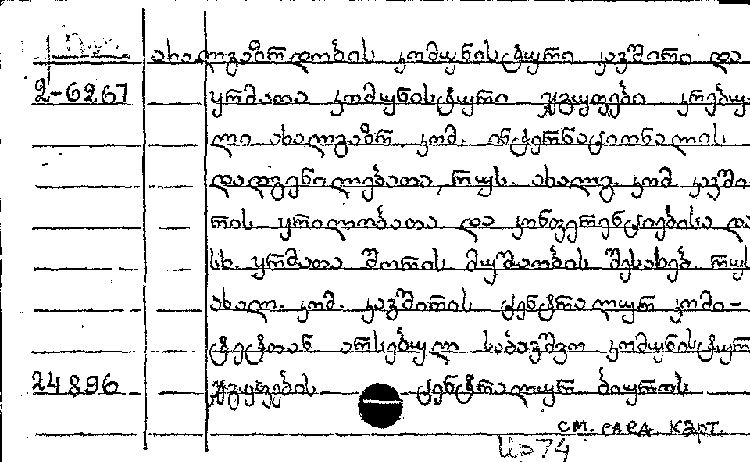 ახალგაზრდობის კომუნისტური კავშირი და
2-6267 ყრმათა კომუნისტური ჯგუფები კრებუ-
ლი ახალგაზრ. კომ. ინტერნაციონალის
დადგენილებათა, რუს. ახალგ. კომ. კავში-
რის ყრილობათა და კონფერენციებისა და
სხ. ყრმათა შორის მუშაობის შესახებ. რუს
ახალ. კომ. კავშირის ცენტრალურ კომი-
ტეტთან არსებულ საბავშვო კომუნისტურ
24896 ჯგუფების ცენტრალურ ბიუროს
см. сара. карт.
74